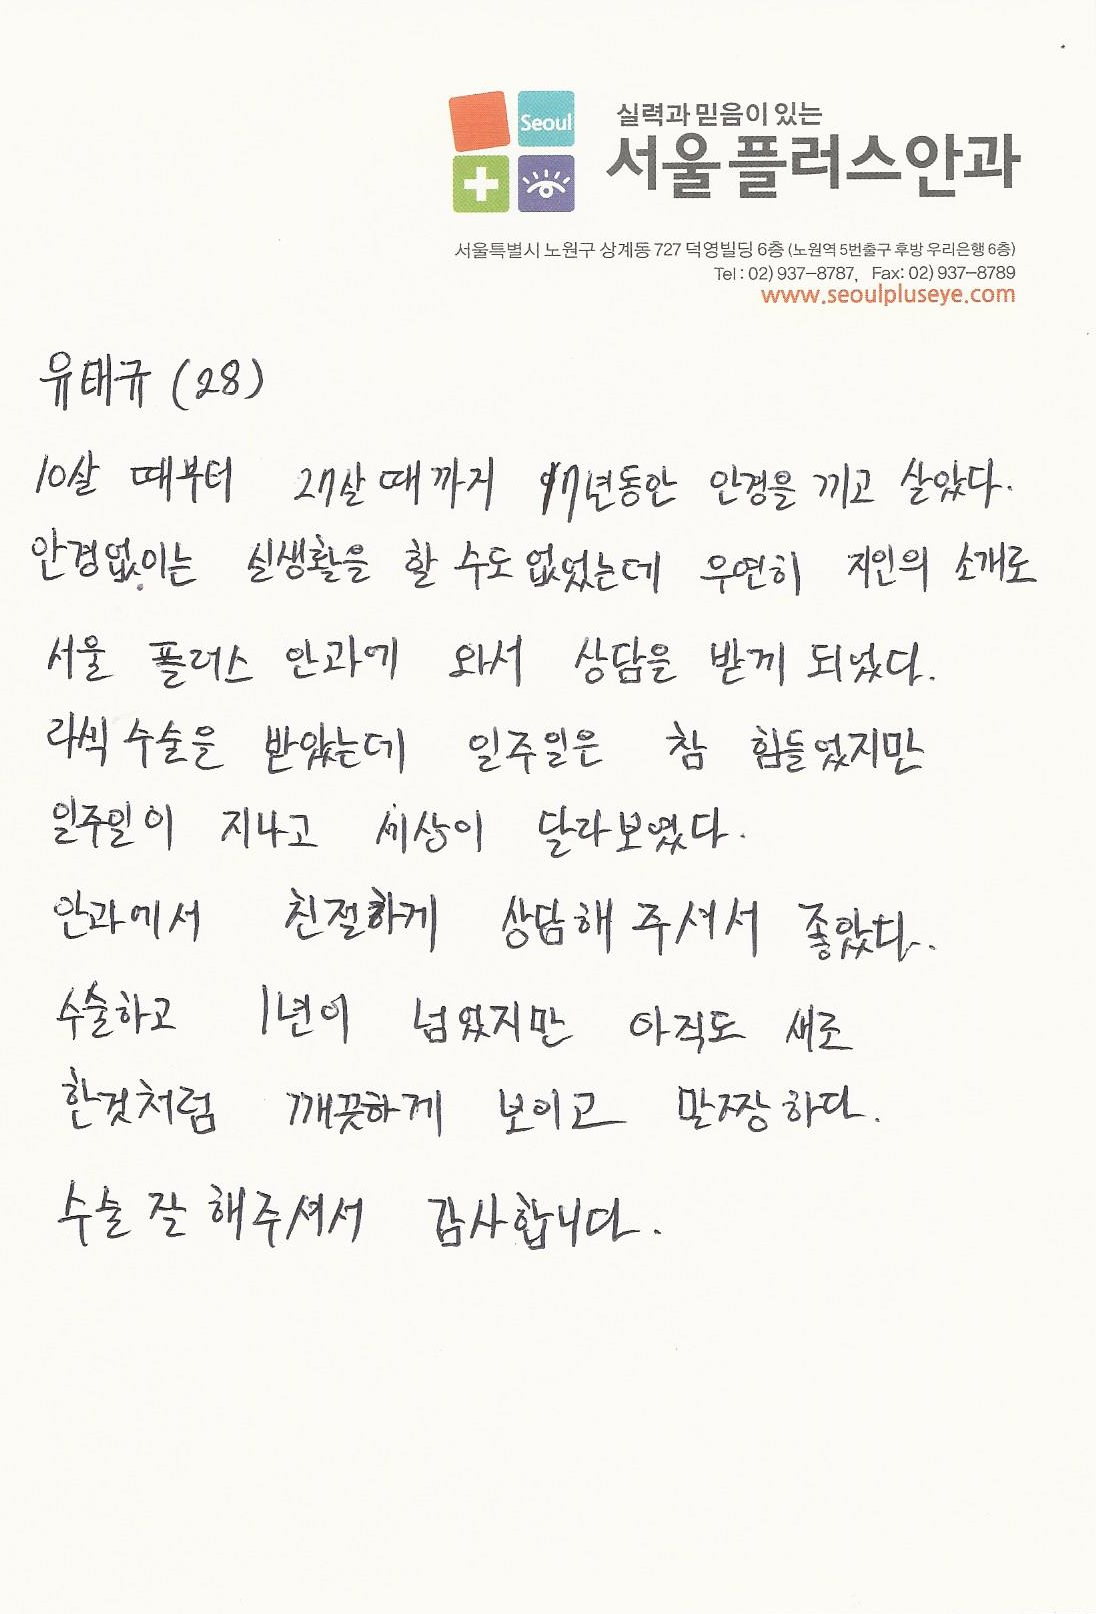 Seoul
실력과 믿음이 있는
서울플러스안과
서울특별시 노원구 상계동 727 덕영빌딩 6층 (노원역 5번출구 후방 우리은행 6층)
Tel : 02) 937-8787, Fax: 02) 937-8789
www.seoulpluseye.com
유태규 (28)
10살 때부터 27살 때 까지 17년동안 안경을 끼고 살았다.
안경없이는 실생활을 할 수도 없었는데 우연히 지인의 소개로
서울 플러스 안과에 와서 상담을 받게 되었다.
라식 수술을 받았는데 일주일은 참 힘들었지만
일주일이 지나고 세상이 달라보였다.
안과에서 친절하게 상담해 주셔서 좋았다.
수술하고 1년이 넘었지만 아직도 새로
한것처럼 깨끗하게 보이고 말짱하다.
수술 잘 해주셔서 감사합니다.